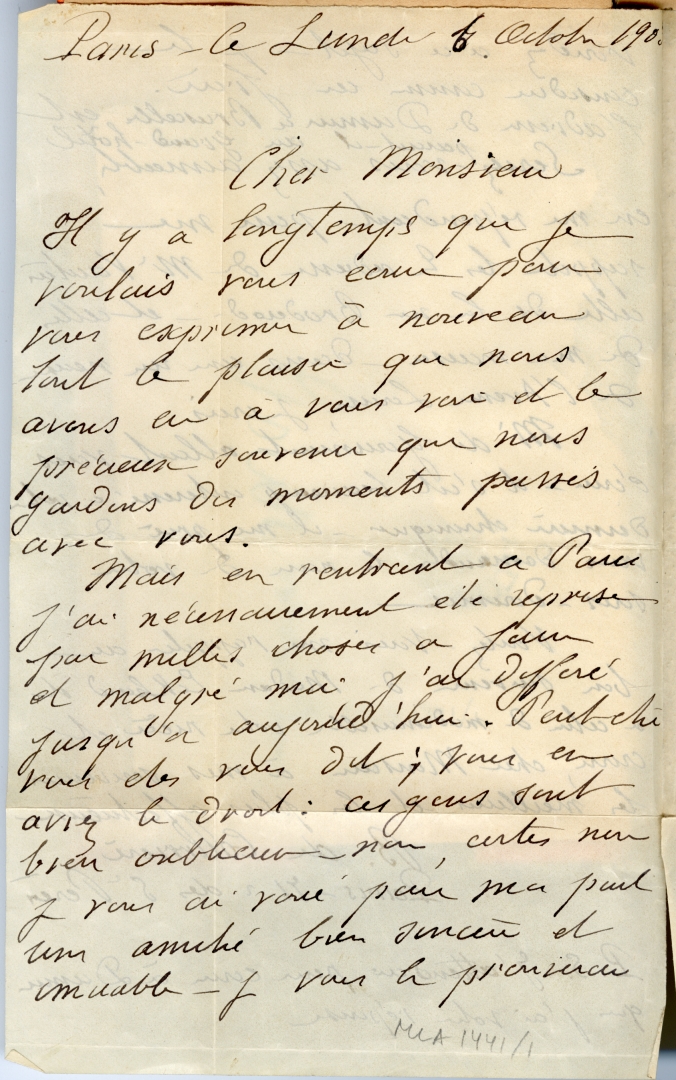 Paris - Ce Lundi 6. Octobr 190
Cher Monsieur
Il y a longtemps que je
voulais vous ecrire pour
vous exprimer à nouveau
tout le plaisir que nous
avons eu à vous voir et le
précieux souvenir que nous
gardons des moments passés
avec vous.
Mais en rentrant a Paris
j'ai nécessairement été reprise
par milles choses a faire
et malgré moi j'ai différé
jusqu'a aujourd'hui. Peut-etre
vous etes vous dit, vous en
aviez le droit : ces gens sont
bien oublieux - non, certes non
je vous ai voué pour ma part
une amitié bien sincère et
immuable - je vous le prouverai
MLA 1441/1